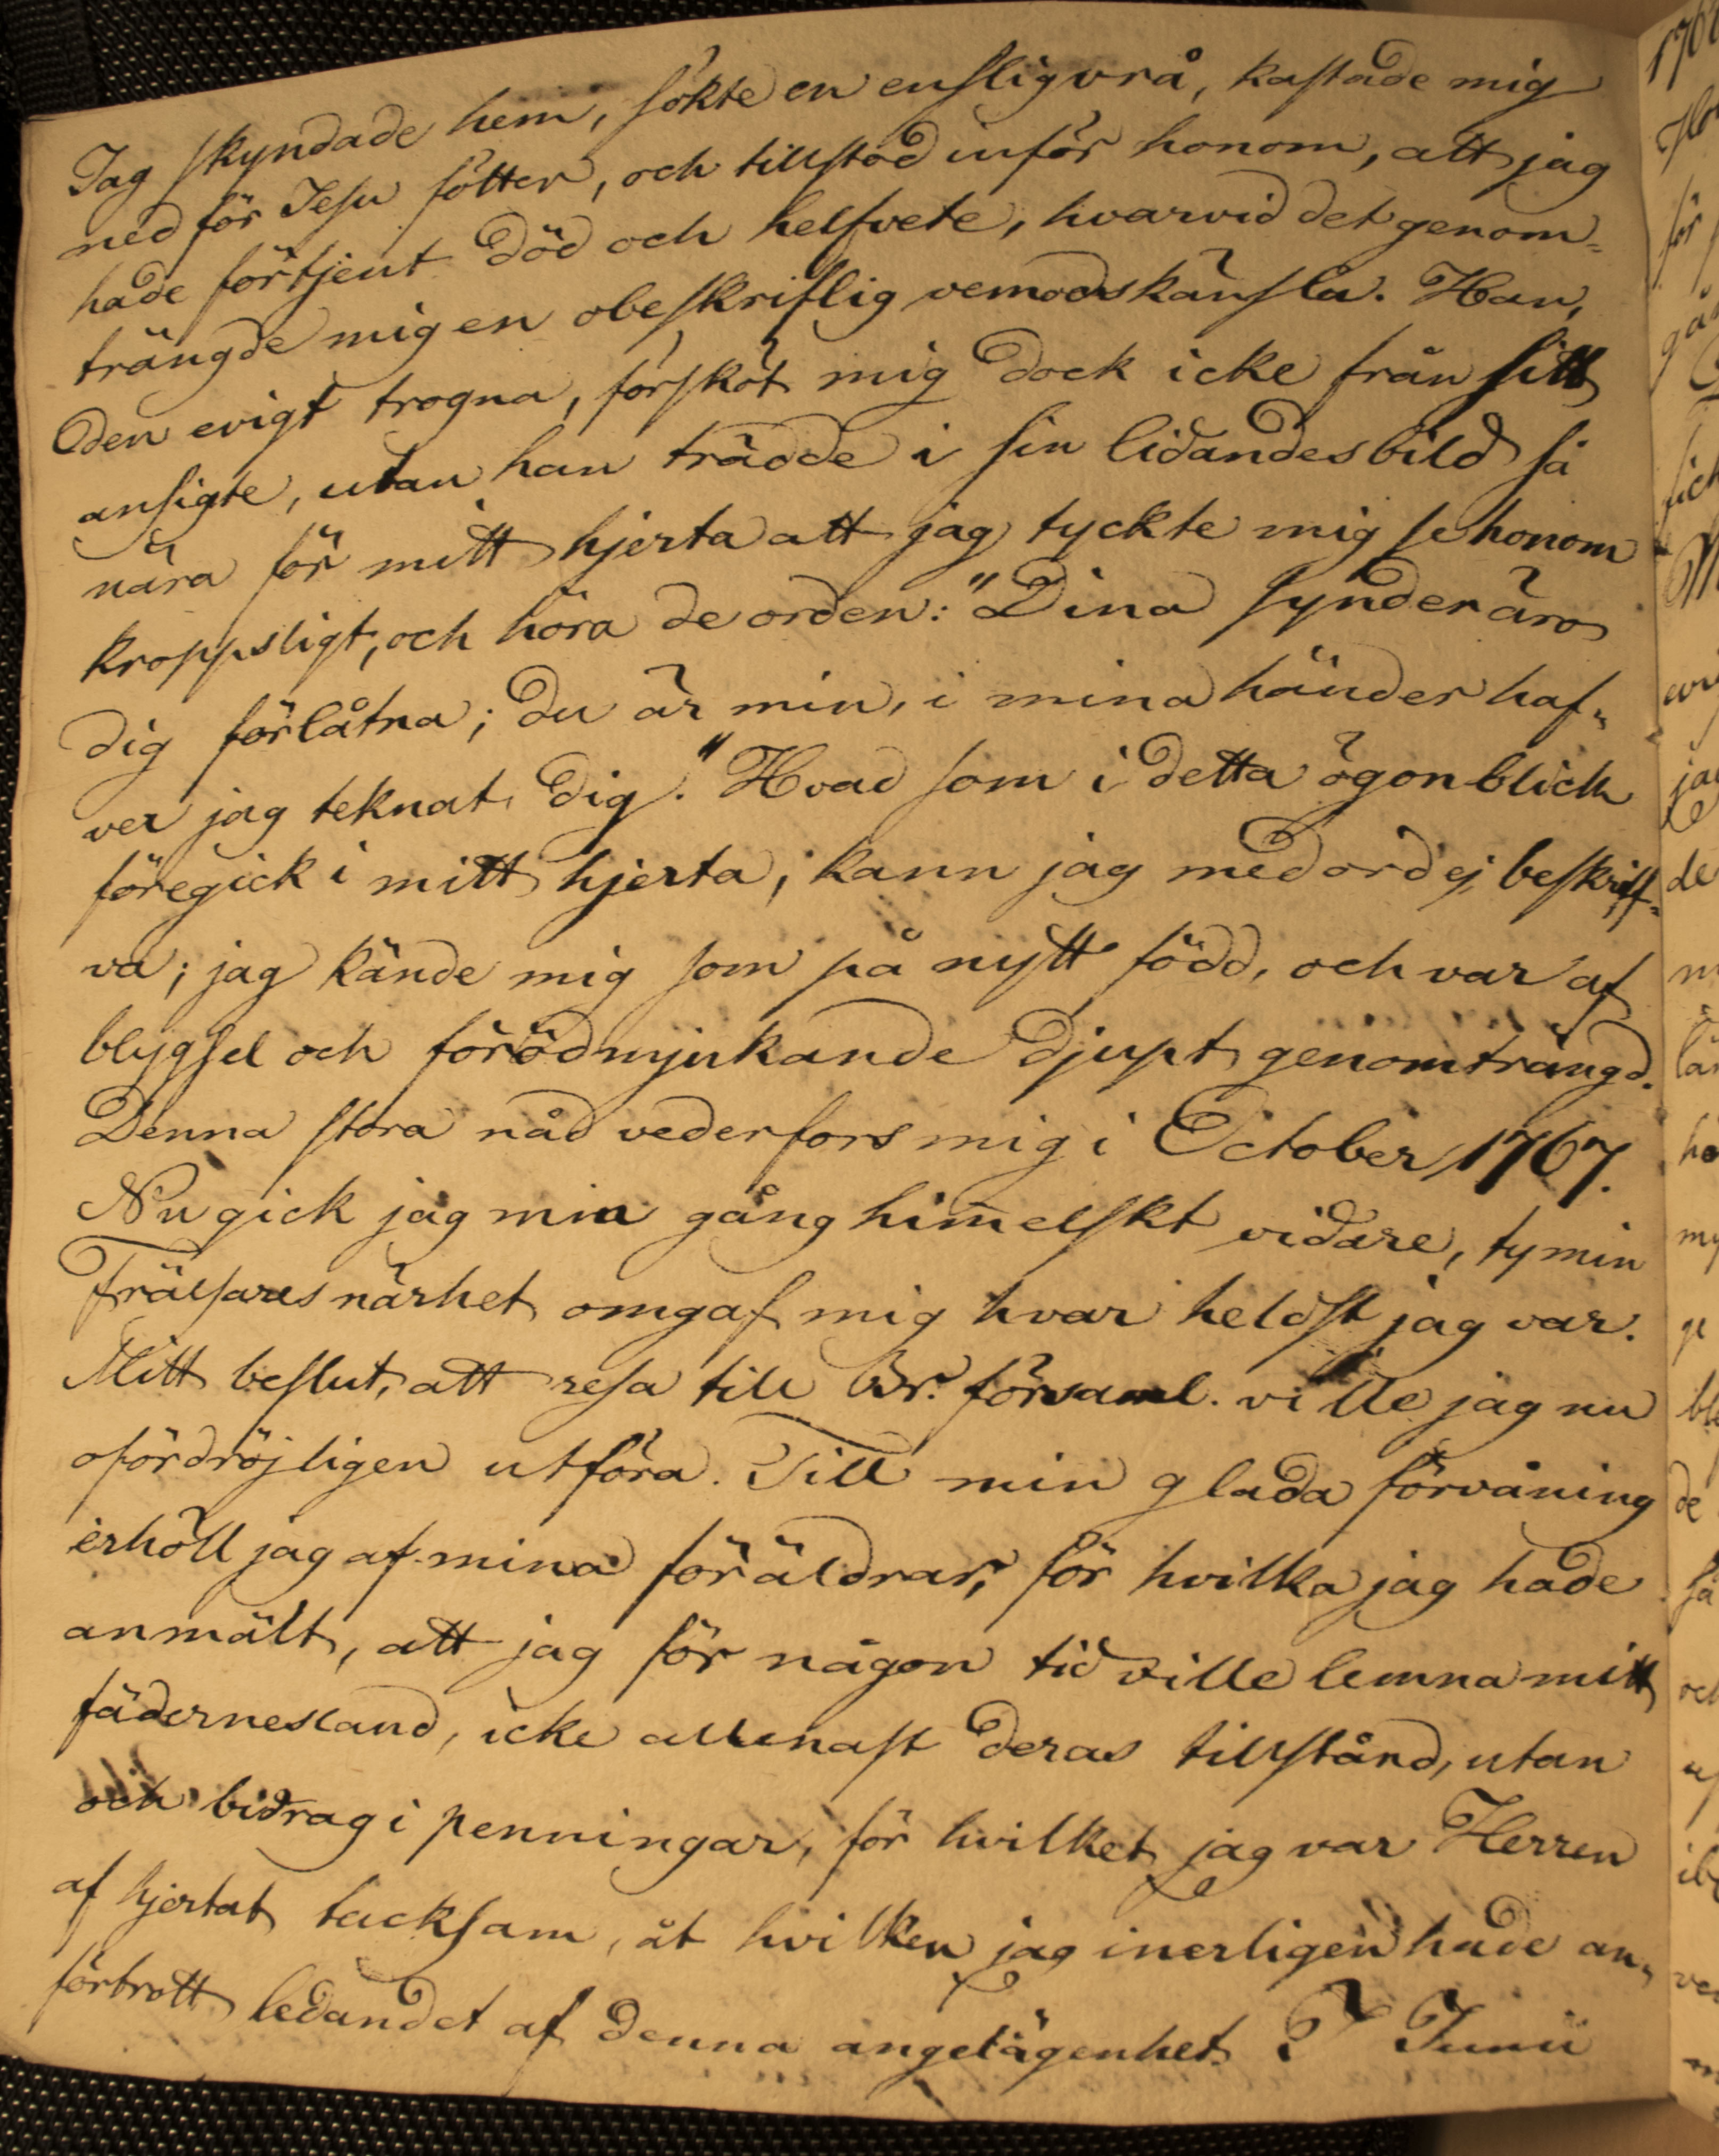 Jag skyndade hem, sökte en enslig vrå, kastade mig
ned för Jesu fötter, och tillstod inför honom, att jag
hade förtjent död och helfvete, hvarvid det genom-
trängde mig en obeskriflig vemodskänsla. Han,
den evigt trogna, försköt mig dock icke från sitt
ansigte, utan han trädde i sin lidandesbild så
nära för mitt hjerta att jag tyckte mig se honom
kroppsligt, och höra de orden: "Dina synder äro
dig förlåtna; du är min, i mina händer haf-
ver jag teknat dig." Hvad som i detta ögonblick
föregick i mitt hjerta, kann jag med ord ej beskriff-
va; jag kände mig som på nytt född, och var af
blygsel och förödmjukande djupt genomträngd.
Denna stora nåd vederfors mig i October 1767.
Nu gick jag min gång himelskt vidare, ty min
Frälsares närhet omgaf mig hvar heldst jag var.
Mitt beslut, att resa till Br. församl. ville jag nu
ofördröjligen utföra. Till min glada förvåning
erhöll jag af mina föräldrar, för hvilka jag hade
anmält, att jag för någon tid ville lemna mitt
fädernesland, icke allenast deras tillstånd, utan
och bidrag i penningar, för hvilket jag var Herren
af hjertat tacksam, åt hvilken jag inerligen hade an-
förtrott ledandet af denna angelägenhet. I Junii